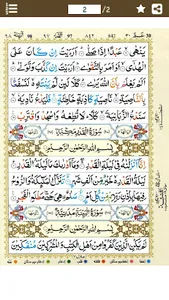 2 /
عم ٣٠ القدر ٩٧ البينة ٩٨
يَنْهٰى عَبْدًا اِذَا صَلّٰى اَرَءَيْتَ اِنْ كَانَ عَلَى
الْهُدٰٓى اَوْ اَمَرَ بِالتَّقْوٰى اَرَءَيْتَ اِنْ كَذَّبَ وَتَوَلّٰى
اَلَمْ يَعْلَمْ بِاَنَّ اللّٰهَ يَرٰى كَلَّا لَئِنْ لَّمْ يَنْتَهِ لَنَسْفَعًا
بِالنَّاصِيَةِ نَاصِيَةٍ كَاذِبَةٍ خَاطِئَةٍ فَلْيَدْعُ نَادِيَهٗ
سَنَدْعُ الزَّبَانِيَةَ كَلَّا لَا تُطِعْهُ وَاسْجُدْ وَاقْتَرِبْ
سُوْرَةُ الْقَدْرِ مَكِّيَّةٌ
بِسْمِ اللّٰهِ الرَّحْمٰنِ الرَّحِيْمِ
اِنَّآ اَنْزَلْنٰهُ فِيْ لَيْلَةِ الْقَدْرِ وَمَآ اَدْرٰىكَ مَا
لَيْلَةُ الْقَدْرِ لَيْلَةُ الْقَدْرِ خَيْرٌ مِّنْ اَلْفِ شَهْرٍ تَنَزَّلُ الْمَلٰٓئِكَةُ وَ
الرُّوْحُ فِيْهَا بِاِذْنِ رَبِّهِمْ مِنْ كُلِّ اَمْرٍ سَلٰمٌ هِيَ حَتّٰى مَطْلَعِ الْفَجْرِ
سُوْرَةُ الْبَيِّنَةِ مَدَنِيَّةٌ
بِسْمِ اللّٰهِ الرَّحْمٰنِ الرَّحِيْمِ
لَمْ يَكُنِ الَّذِيْنَ كَفَرُوْا مِنْ اَهْلِ الْكِتٰبِ وَالْمُشْرِكِيْنَ مُنْفَكِّيْنَ